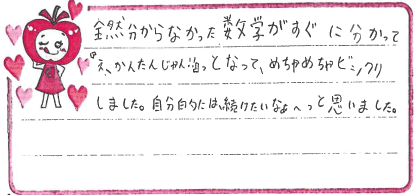 全然分からなかった数学がすぐに分かって
『え、かんたんじゃん』っとなって、めちゃめちゃビックリ
しました。自分的には、続けたいなぁ〜っと思いました。